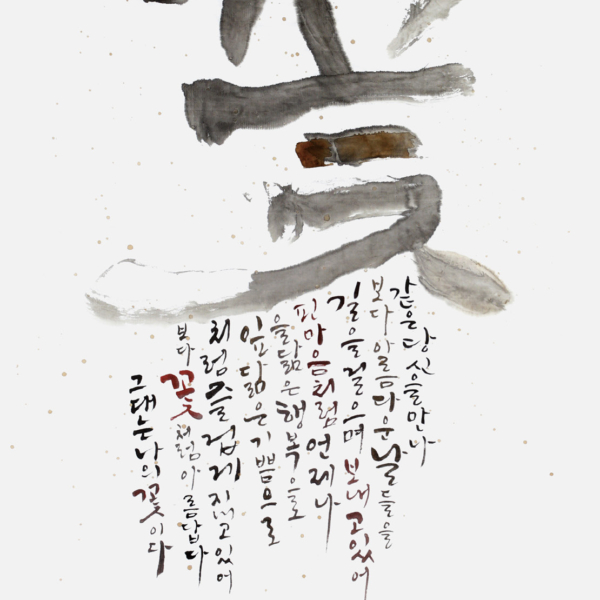 같은 당신을 만나
보다 아름다운 날들을
길을 걸으며 보내고 있어
핀 마음처럼 언제나
을 닮은 행복으로
잎 닮은 기쁨으로
처럼 즐겁게 지내고 있어
보다 꽃처럼 아름답다
그대는 나의 꽃이다